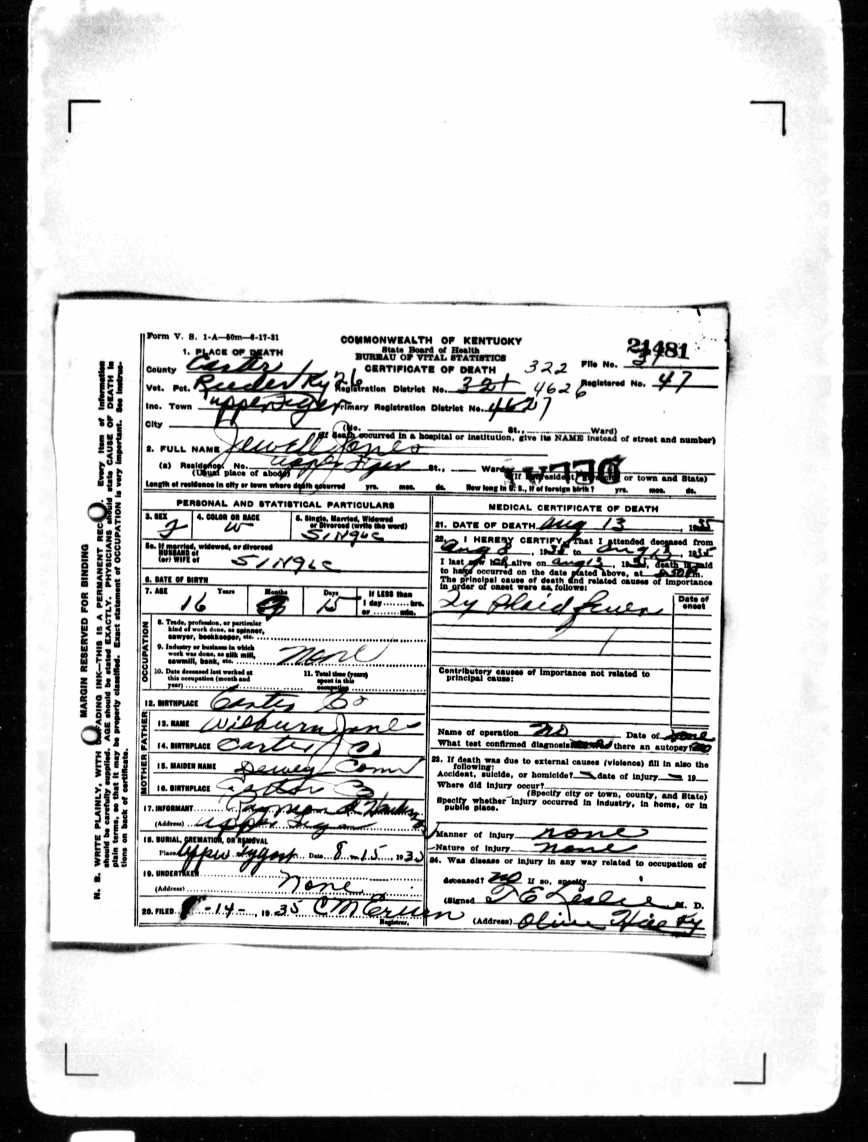 Form V. S. 1-A—50m—8-17-31
COMMONWEALTH OF KENTUCKY
State Board of Health
BUREAU OF VITAL STATISTICS
CERTIFICATE OF DEATH
1. PLACE OF DEATH
File No. 21481
County Carter
322
Vot. Pct. Registration District No. 4626 Registered No. 47
Inc. Town Primary Registration District No. 4627
City (No. St., Ward)
(If death occurred in a hospital or institution, give its NAME instead of street and number)
2. FULL NAME Jewell Jones
(a) Residence. No. St., Ward
(Usual place of abode) (If nonresident or town and State)
Length of residence in city or town where death occurred yrs. mos. ds. How long in U. S., if of foreign birth? yrs. mos. ds.
PERSONAL AND STATISTICAL PARTICULARS
3. SEX 4. COLOR OR RACE 5. Single, Married, Widowed
or Divorced (write the word)
F W Single
5a. If married, widowed, or divorced
HUSBAND of
(or) WIFE of Single
6. DATE OF BIRTH
7. AGE Years Months Days If LESS than
1 day hrs.
or min.
16 15
OCCUPATION
8. Trade, profession, or particular
kind of work done, as spinner,
sawyer, bookkeeper, etc.
9. Industry or business in which
work was done, as silk mill,
sawmill, bank, etc. None
10. Date deceased last worked at
this occupation (month and
year)
11. Total time (years)
spent in this
occupation
12. BIRTHPLACE Carter Co
FATHER
13. NAME Wilburn Jones
14. BIRTHPLACE Carter Co
MOTHER
15. MAIDEN NAME Dewey Conn
16. BIRTHPLACE Carter Co
17. INFORMANT
(Address) Upper
18. BURIAL, CREMATION, OR REMOVAL
Place Upper Tygart Date 8-15 1935
19. UNDERTAKER None
(Address)
20. FILED 8-14-, 1935 C M
Registrar.
MEDICAL CERTIFICATE OF DEATH
21. DATE OF DEATH Aug 13, 1935
22. I HEREBY CERTIFY, That I attended deceased from
Aug 8, 1935 to Aug 13, 1935
I last saw her alive on Aug 13, 1935, death is said
to have occurred on the date stated above, at m.
The principal cause of death and related causes of importance
in order of onset were as follows:
Date of
onset
Ty Phoid fever
Contributory causes of importance not related to
principal cause:
Name of operation no Date of none
What test confirmed diagnosis there an autopsy? no
23. If death was due to external causes (violence) fill in also the
following:
Accident, suicide, or homicide? date of injury 19
Where did injury occur?
(Specify city or town, county, and State)
Specify whether injury occurred in industry, in home, or in
public place.
Manner of injury none
Nature of injury none
24. Was disease or injury in any way related to occupation of
deceased? no If so, specify
(Signed) T E Leslie M. D.
(Address) Olive Hill Ky
MARGIN RESERVED FOR BINDING
N. B. WRITE PLAINLY, WITH UNFADING INK—THIS IS A PERMANENT RECORD. Every item of information
should be carefully supplied. AGE should be stated EXACTLY. PHYSICIANS should state CAUSE OF DEATH in
plain terms, so that it may be properly classified. Exact statement of OCCUPATION is very important. See instruc-
tions on back of certificate.